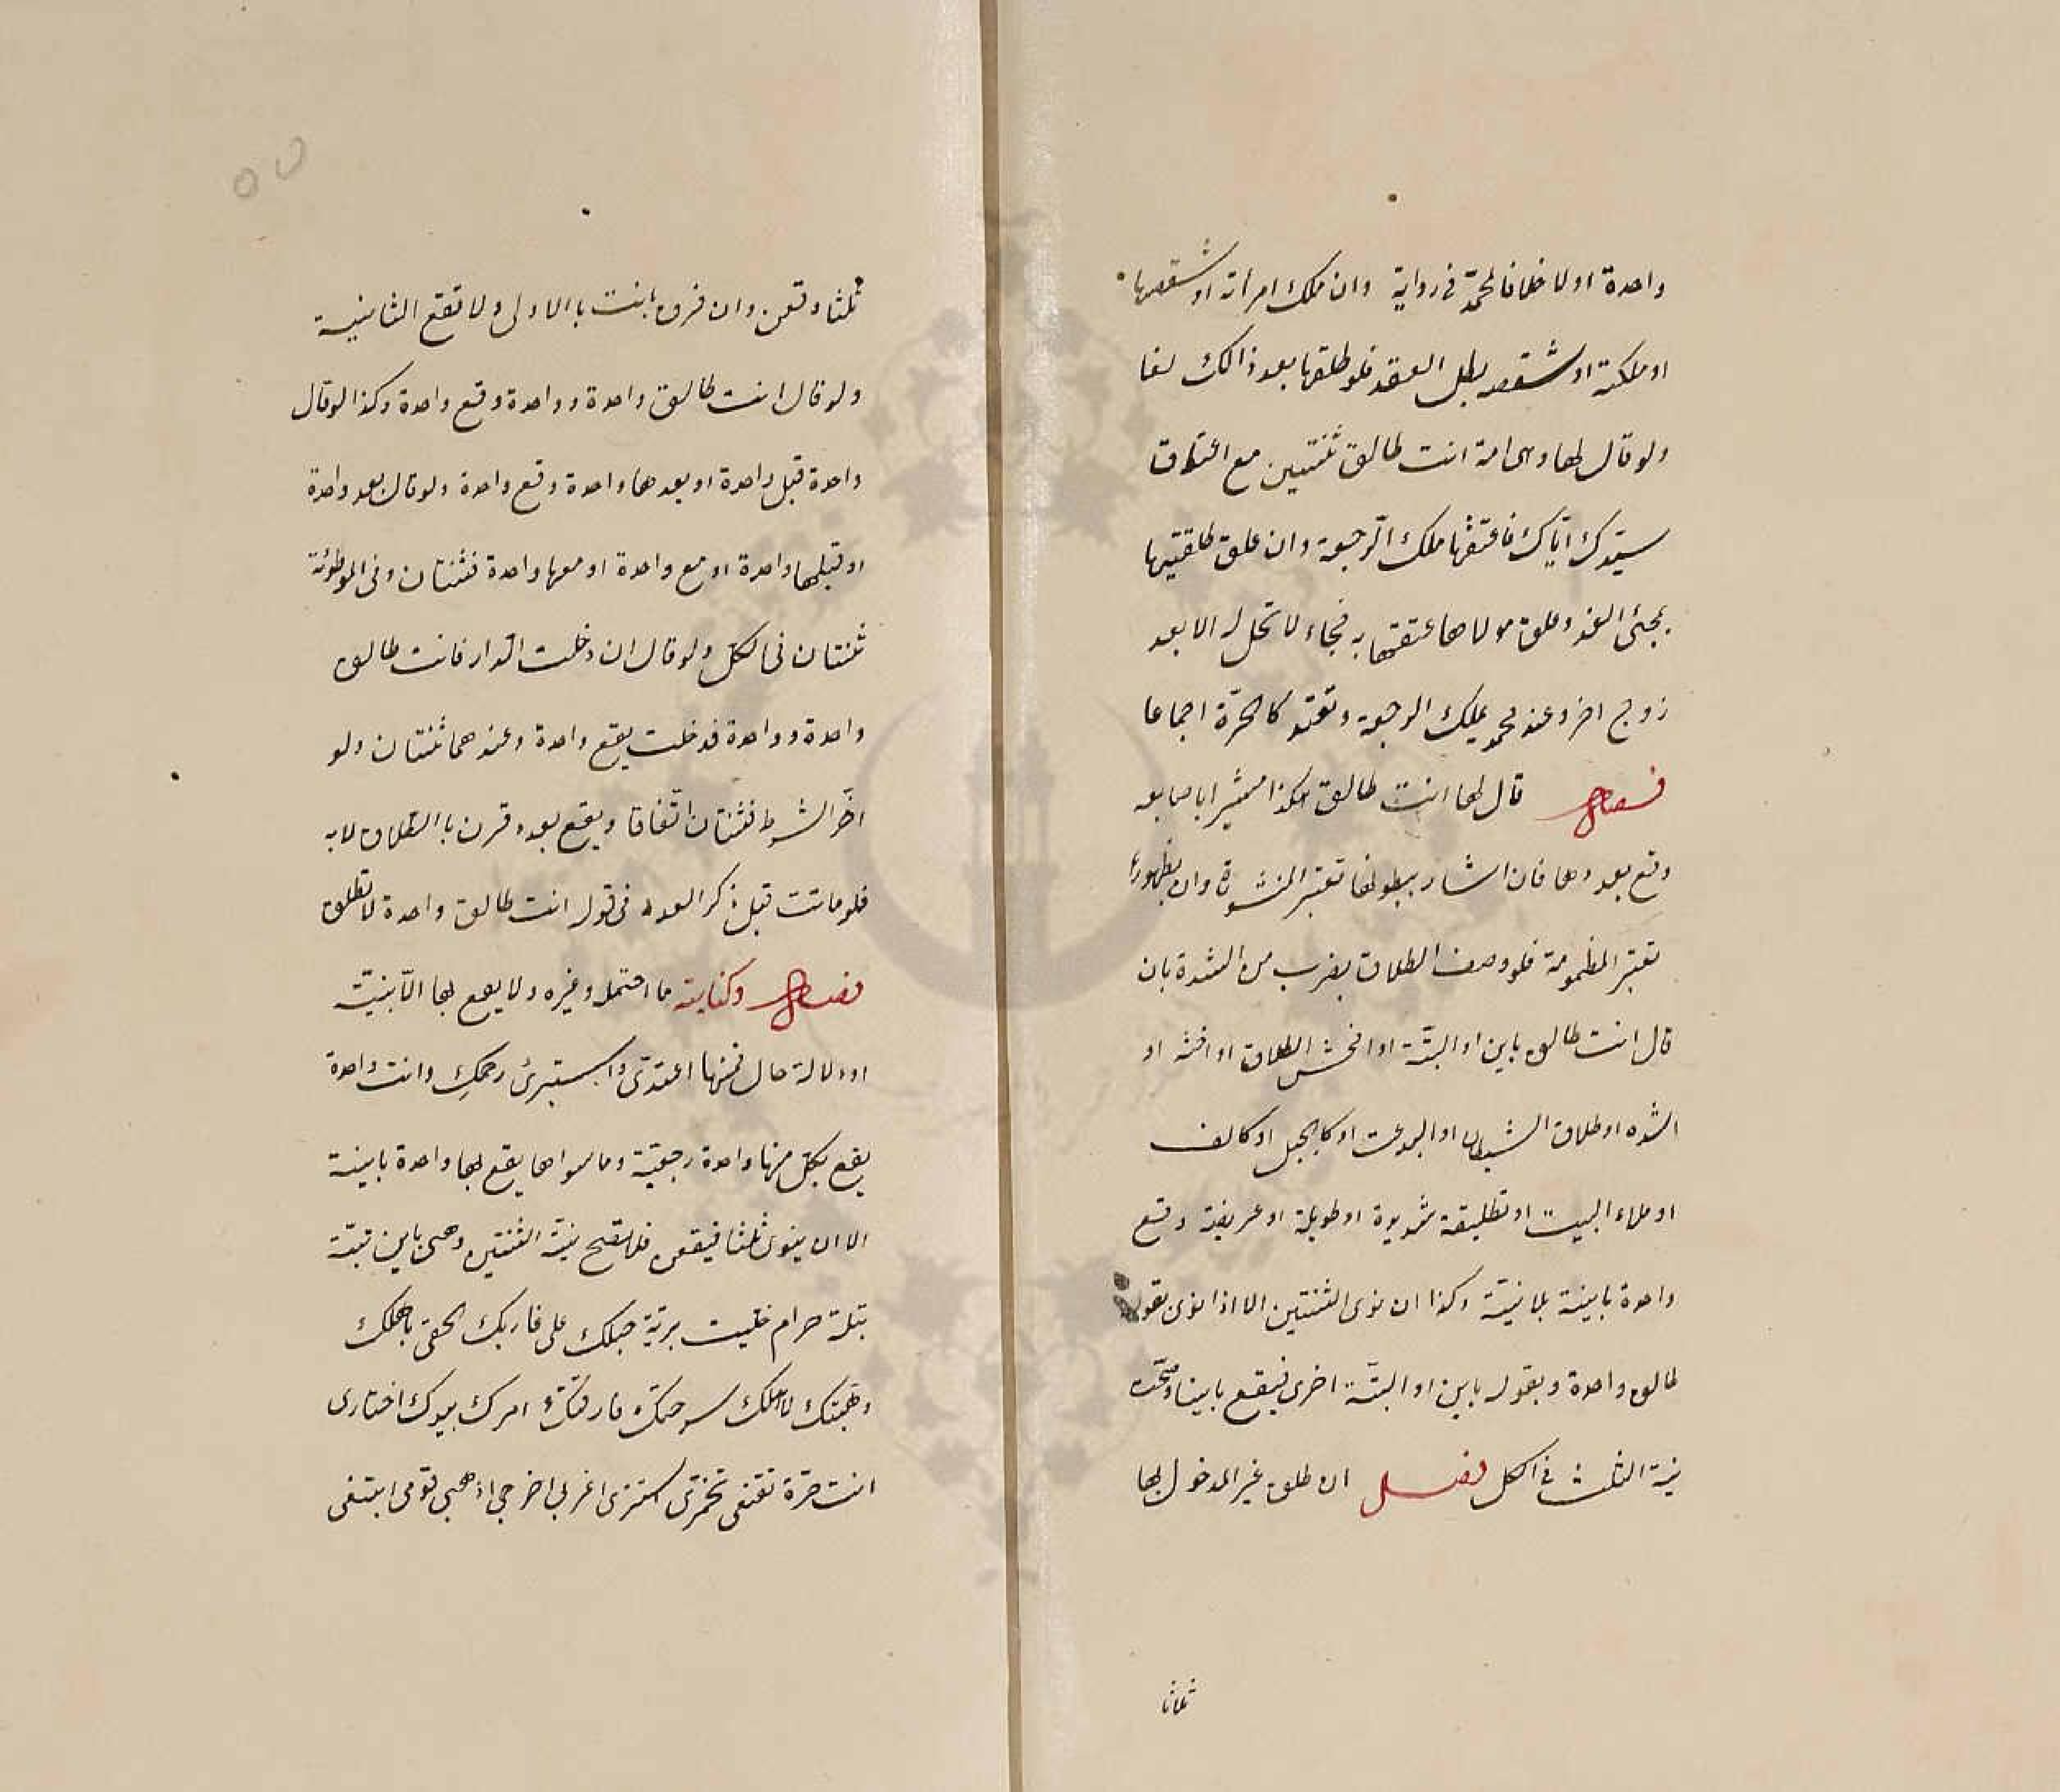 واحدة او لا خلافا لمحمّد فى رواية وان ملك امرأته او شقصها
او ملكته او شقصه بطل العقد فلو طلقها بعد ذالك لغا
ولو قال لها وهى امة انت طالق ثنتين مع اعتاق
سيّدك ايّاك فاعتقها ملك الرّجعة وان علق طلقتيها
بمجئ الغد وعلق مولاها عتقها به فجاء لا تحل له الا بعد
زوج اخر وعند محمد يملك الرجعة وتعتد كالحرّة اجماعا
فصل قال لها انت طالق هكذا مشيرا باصابعه
وقع بعددها فان اشار ببطونها تعتبر المنشورة وان بظهورها
تعتبر المضمومة فلو وصف الطلاق بضرب من الشدة بان
قال انت طالق باين او البتّة او افحش الطلاق او اخبثه او
اشده او طلاق الشيطان او البدعت او كالجبل او كالف
او ملاء البيت او تطليقة شديدة او طويلة او عريضة وقع
واحدة باينة بلا نيّة وكذا ان نوى الثنتين الا اذا نوى بقوله
طالق واحدة وبقوله باين او البتّة اخرى فيقع باينا وصحّت
نية الثلث فى الكل فصل ان طلق غير المدخول بها
ثلاثا
ثلثا وقعن وان فرق بانت باالاولى ولا تقع الثانية
ولو قال انت طالق واحدة وواحدة وقع واحدة وكذا لو قال
واحدة قبل واحدة او بعدها واحدة وقع واحدة ولو قال بعد واحدة
او قبلها واحدة او مع واحدة او معها واحدة فثنتان وفى الموطوئة
ثنتان فى الكل ولو قال ان دخلت الدّار فانت طالق
واحدة وواحدة فدخلت يقع واحدة وعندهما ثنتان ولو
اخّر الشرط فثنتان اتّفاقا ويقع بعدد قرن باالطلاق لا به
فلو ماتت قبل ذكر العدد فى قوله انت طالق واحدة لا تطلق
فصل وكنايته ما احتمله وغيره ولا يقع بها الّا بنيّة
او دلالة حال فمنها اعتدّى واستبرئ رحمكِ وانت واحدة
يقع بكل منها واحدة رجعيّة وما سواها يقع بها واحدة باينة
الا ان ينوى ثلثا فيقعن فلا تصح نيّة الثنتين وهى باين بتّة
بتلة حرام خليت بريّة حبلك على غاربك الحقى باهلك
وهبتك لاهلك سرحتك فارقتك امرك بيدك اختارى
انت حرّة تقنعى تخمّرى استترى اغربى اخرجى اذهبى قومى ابتغى